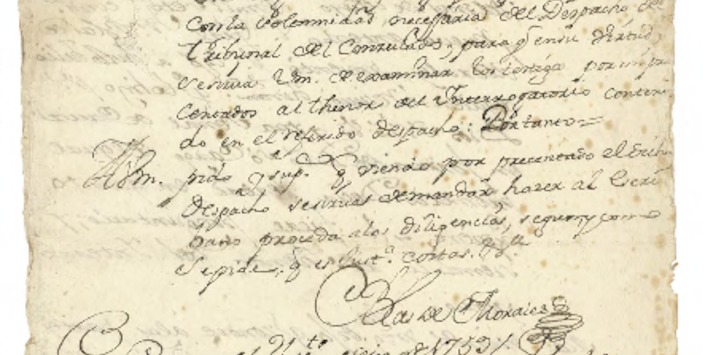 con la solemnidad necessaria del Despacho del
Tribunal del Consulado, para q̃ en su virtud,
se sirva Vm. de examinar los testigos por mi pre
centados al thenor del Interrogatorio conteni
do en el referido despacho: Por tanto=
A Vm. pido y sup.co q̃ viendo por precentado el dicho
despacho se sirva de mandar hazer al Escri
bano proceda a las diligencias, segun y como
se pide, q̃ es Just.a costas. V.a
Blas de Morales
de 1753